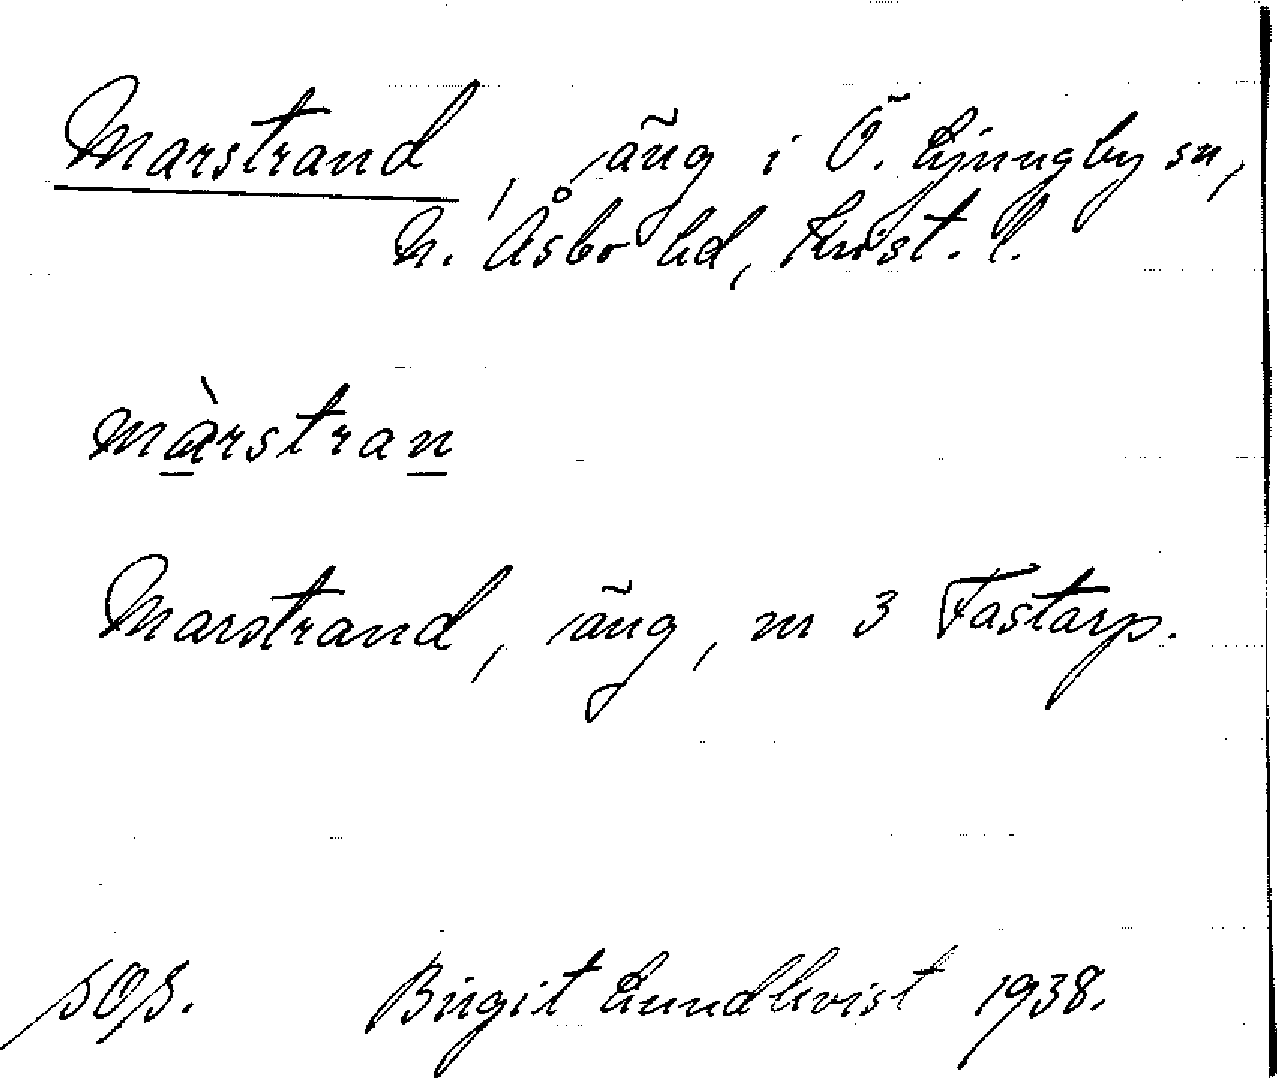 Marstrand, äng i Ö. Ljungby sn,
N. Åsbo hd, Krist. l.
màrstran
Marstrand, äng, nr 3 Fastarp.
SOS. Birgit Lundkvist 1938.